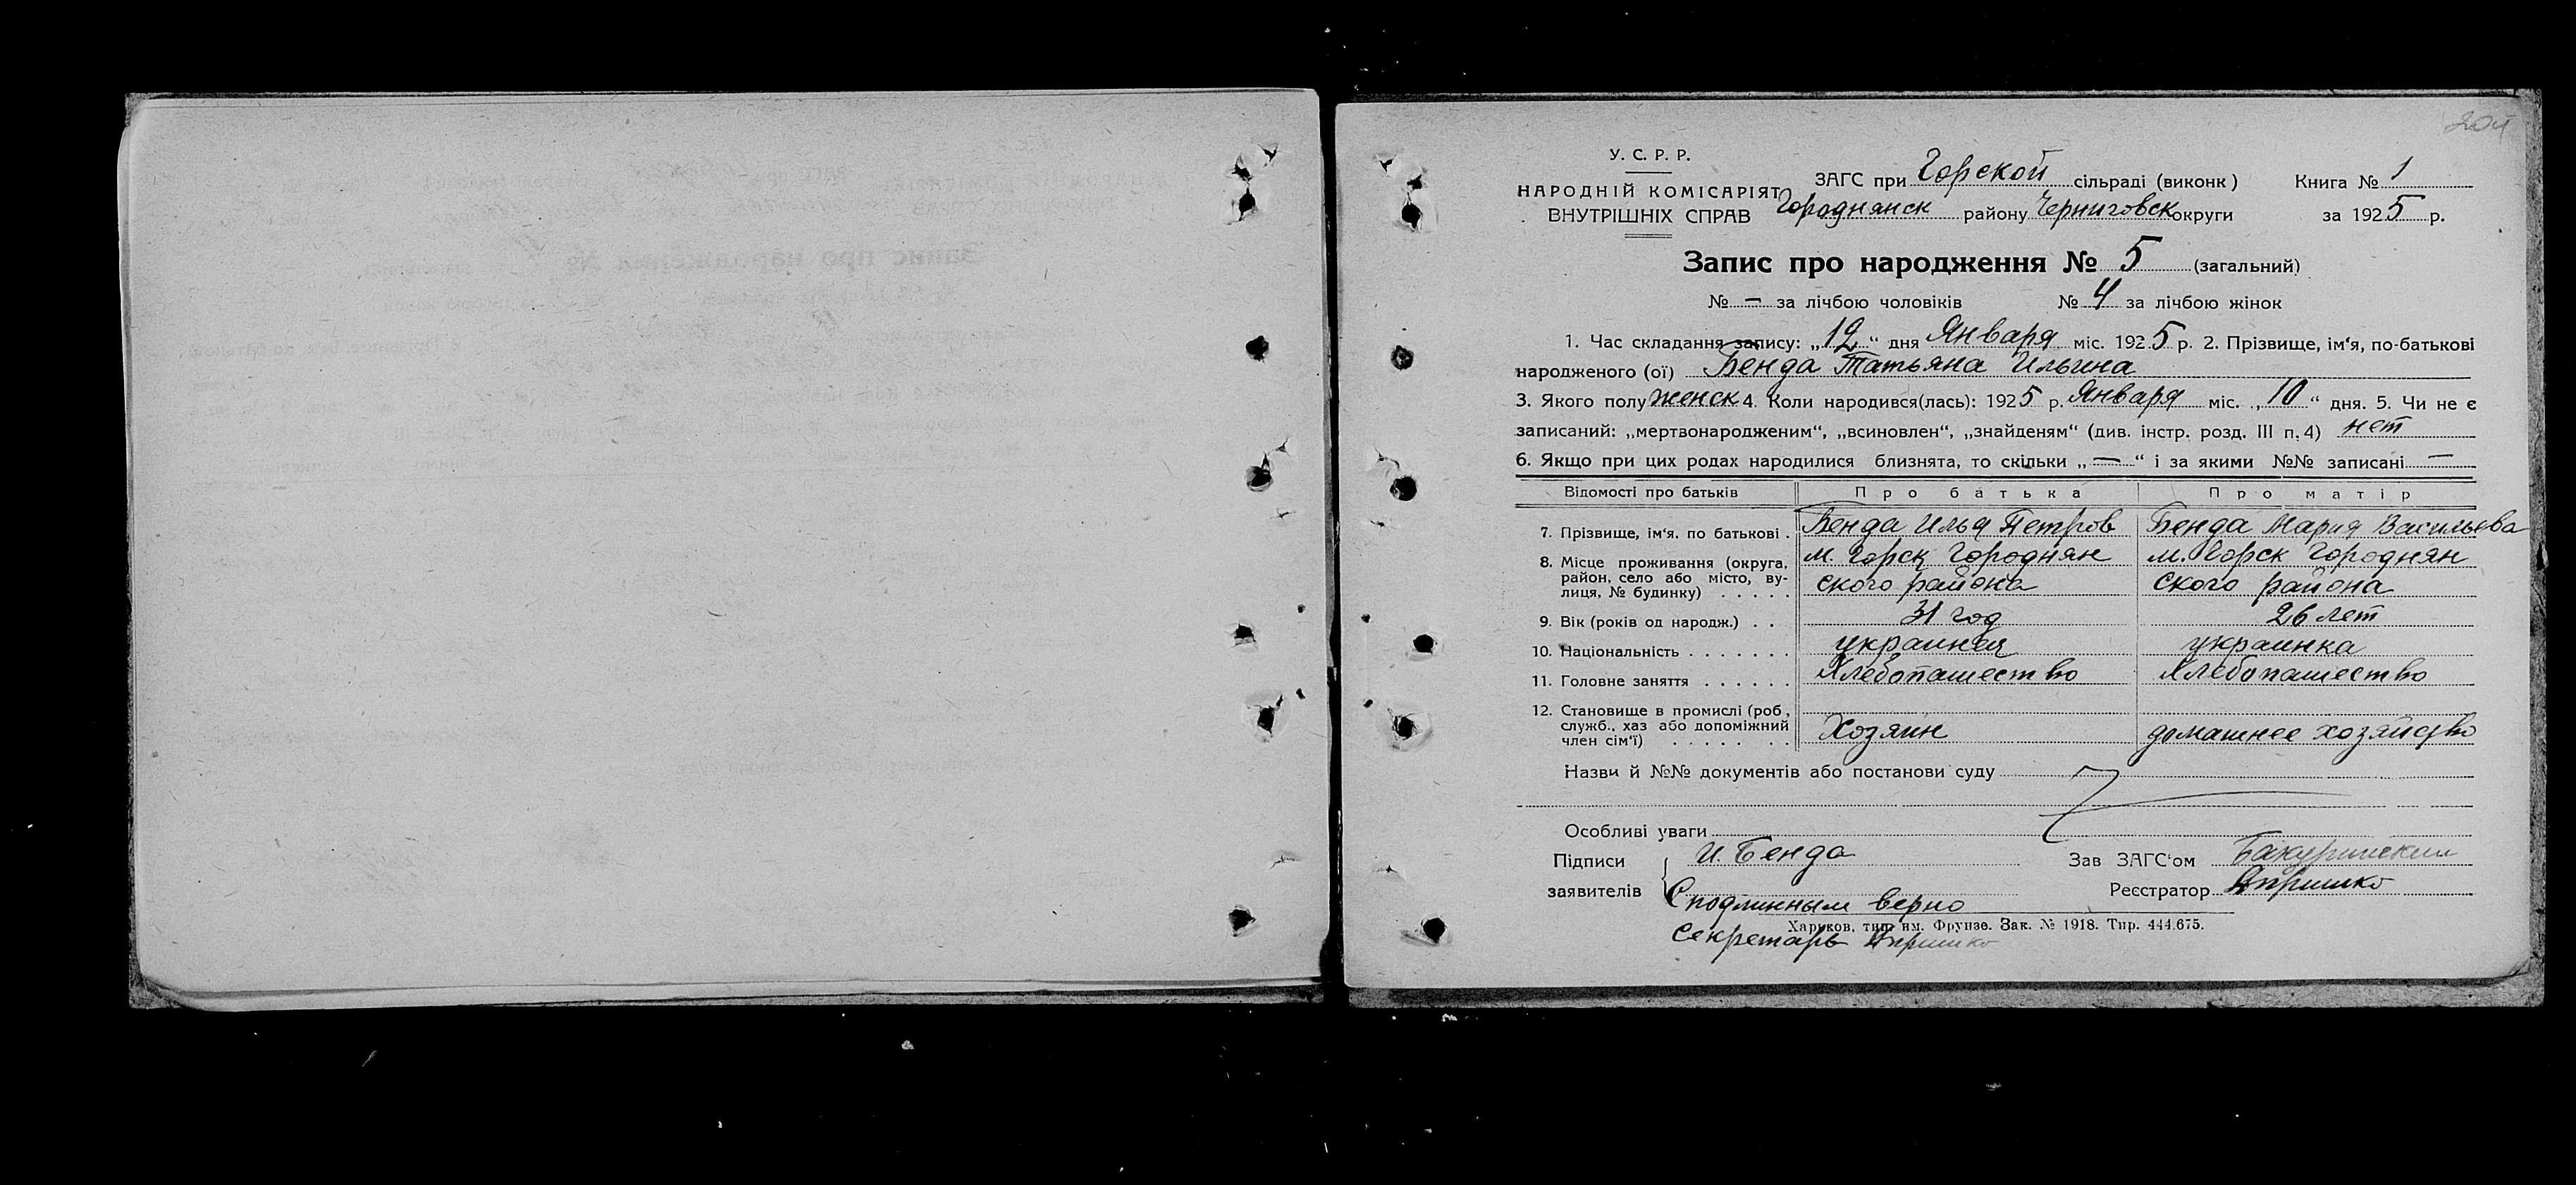 У. С. Р. Р.
НАРОДНІЙ КОМІСАРІЯТ
ВНУТРІШНІХ СПРАВ
ЗАГС при Горской сільраді (виконк) Книга № 1
Городнянск району Черниговск округи за 1925 р.
Запис про народження № 5 (загальний)
№ — за лічбою чоловіків № 4 за лічбою жінок
1. Час складання запису: „12“ дня Января міс. 1925 р. 2. Прізвище, ім‘я, по-батькові
народженого (ої) Бенда Татьяна Ильина
3. Якого полу женск 4. Коли народився(лась): 1925 р. Января міс. „10“ дня. 5. Чи не є
записаний: „мертвонародженим“, „всиновлен“, „знайденям“ (див. інстр. розд. III п. 4) нет
6. Якщо при цих родах народилися близнята, то скільки „—“ і за якими №№ записані —
Відомості про батьків Про батька Про матір
7. Прізвище, ім‘я, по батькові . Бенда Илья Петров Бенда Мария Васильева
8. Місце проживання (округа, м. Горск Городнян м. Горск Городнян
район, село або місто, ву-
лиця, № будинку) . . . . . ского района ского района
9. Вік (років од народж.) . . 31 год 26 лет
10. Національність . . . . . . . украинец украинка
11. Головне заняття . . . . . . Хлебопашество Хлебопашество
12. Становище в промислі (роб.,
служб., хаз або допоміжний
член сім‘ї) . . . . . . . Хозяин домашнее хозяйство
Назви й №№ документів або постанови суду
Особливі уваги
Підписи И. Бенда Зав ЗАГС‘ом
заявителів Реєстратор
С подлинным верно
Харьков, тип. им. Фрунзе. Зак. № 1918. Тир. 444.675.
Секретарь